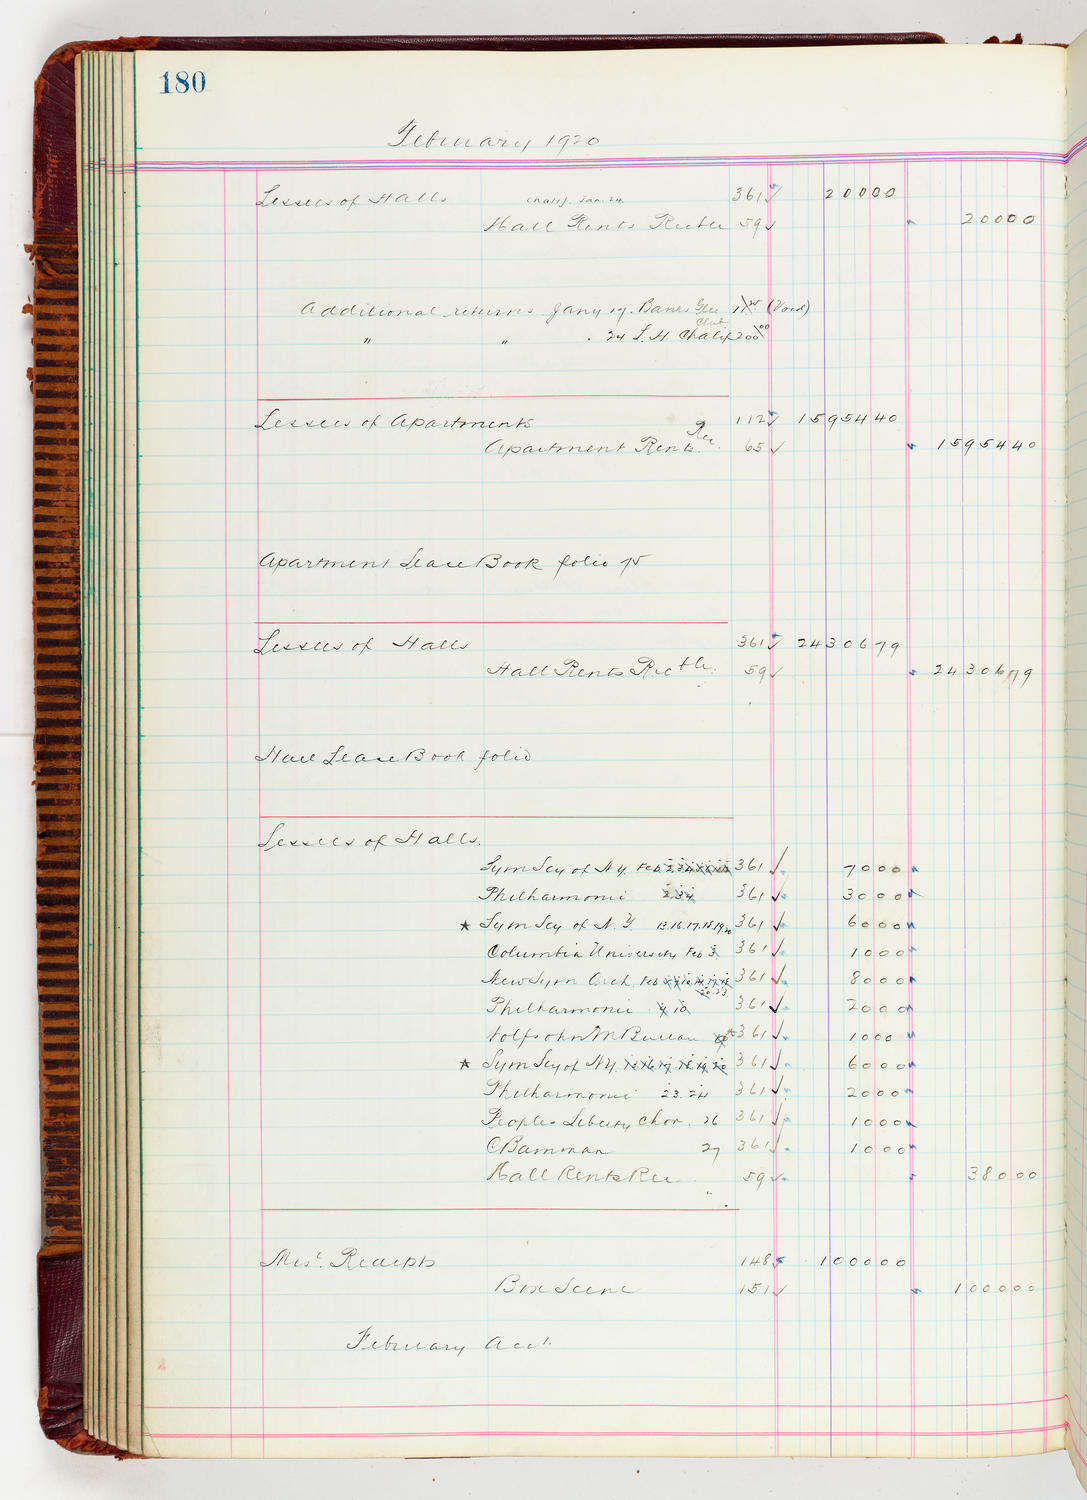 180
February 1920
Lessees of Halls Chalif Jan. 24 361 20000
Hall Rents Rec'ble 59 20000
Additional returns Jany 17. Banks Glee Club (Void)
" " . 24 L. H. Chalif 200 00
Lessees of Apartments 112 1595440
Apartment Rents Rec. 65 1595440
Apartment Lease Book folio 75
Lessees of Halls 361 2430679
Hall Rents Rec'ble. 59 2430679
Hall Lease Book folio
Lessees of Halls.
Sym Socy of N.Y. Feb 361 7000
Philharmonic 2 3 4 361 3000
* Sym Socy of N.Y. 13.16.17.18.19.20 361 6000
Columbia University Feb 3 361 1000
New Sym Orch. Feb 361 8000
Philharmonic 9 10 361 2000
Wolfsohn M Bureau 361 1000
* Sym Socy of N.Y. 13 16 17 18 19 20 361 6000
Philharmonic 23. 24 361 2000
Peoples Liberty Chor. 26 361 1000
C Bamman 27 361 1000
Hall Rents Rec 59 38000
Misc. Receipts 148 100000
Box Scene 151 100000
February Acct.